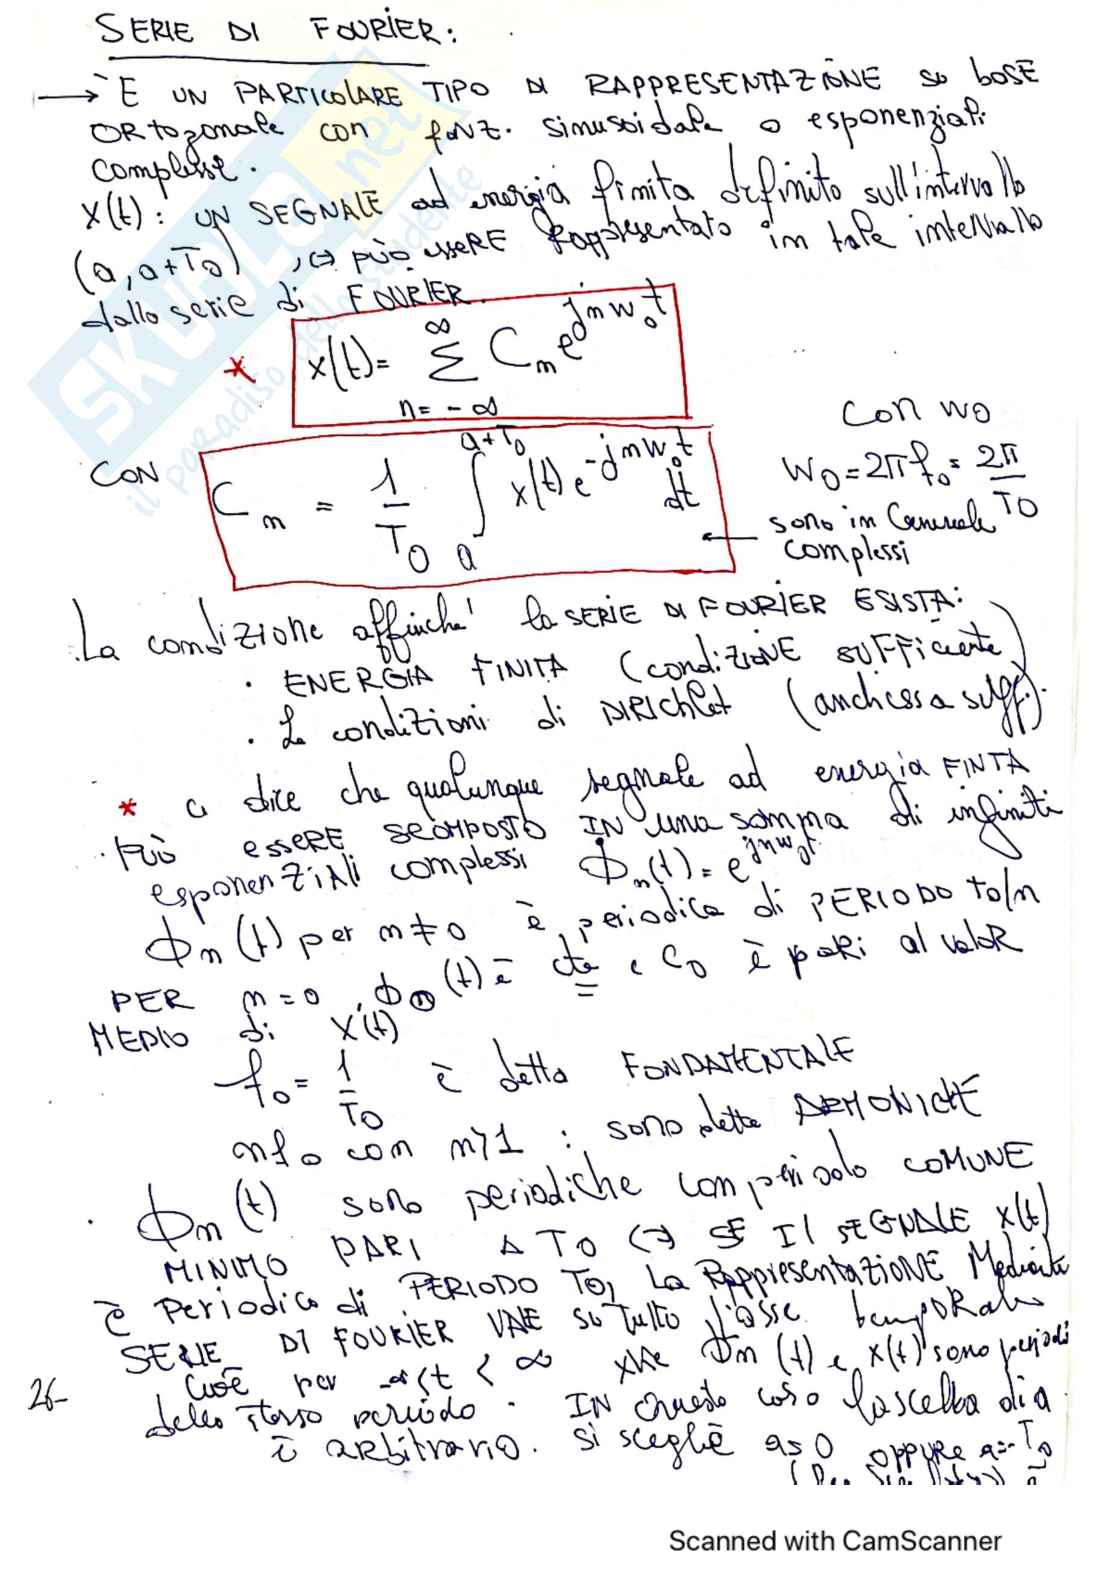 SERIE DI FOURIER:
→ È UN PARTICOLARE TIPO DI RAPPRESENTAZIONE su base
ORtogonale con funz. sinusoidale o esponenziali
complesse.
X(t): UN SEGNALE ad energia finita definito sull'intervallo
(a, a+T0), può essERE Rappresentato in tale intervallo
dalla serie di FOURIER.
* x(t)= ∑ n=-∞ ∞ Cn e^jnw0t
CON Cn = 1/T0 ∫ a a+T0 x(t) e^-jnw0t dt
con wo
wo=2πf0= 2π/T0
← sono in Generale
complessi
La condizione affinche' la SERIE DI FOURIER ESISTA:
· ENERGIA FINITA (condizIONE SUFFiciente)
· Le condizioni di DIRIChlet (anch'essa suff).
* ci dice che qualunque segnale ad energia FINTA
Può essERE SCOMPOSTO IN una somma di infiniti
esponenziali complessi Φn(t)= e^jnw0t
Φn(t) per n≠0 è periodica di PERIODO to/n
PER n=0, Φ0(t) è cte e C0 è pari al valoR
MEDIO di X(t)
f0= 1/T0 è detta FONDAMENTALE
nf0 con n>1 : sono dette ARMONICHE
· Φn(t) sono periodiche con periodo COMUNE
MINIMO PARI A TO ⇔ SE Il SEGNALE X(t)
è periodico di PERIODO TO, La RappresentaziONE Mediante
SERIE DI FOURIER VALE su tutto l'asse tempORale
Cioè per -∞<t<∞ xke Φn(t) e X(t) sono periodi
dello stesso periodo. IN questo caso la scelta di a
è arbitraria. Si sceglie a=0 oppure a=-T0
26-
SKUOLA.net
il paradiso dello studente
Scanned with CamScanner